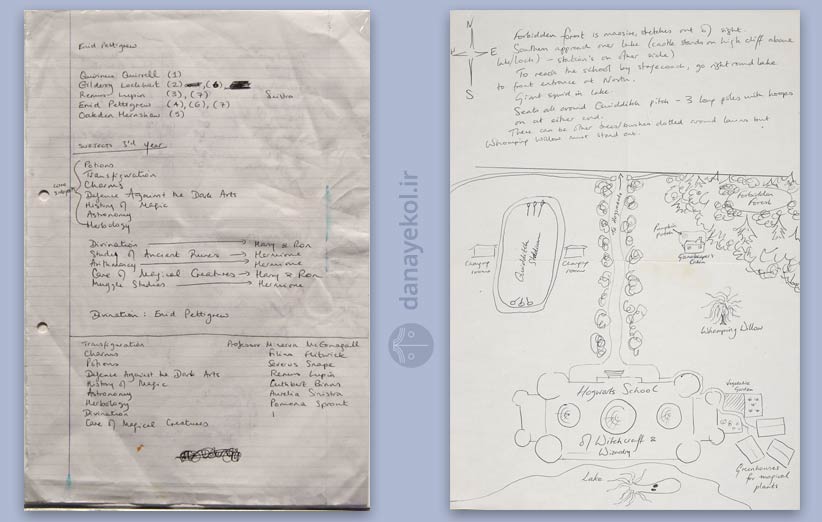 Enid Pettigrew
Quirinus Quirrell (1)
Gilderoy Lockhart (2) , (6),
Remus Lupin (3), (7) Sinistra
Enid Pettigrew (4), (6), (7)
Oakden Hernshaw (5)
SUBJECTS 3rd year
Potions
Transfiguration
Charms
core subjects
Defence Against the Dark Arts
History of Magic
Astronomy
Herbology
Divination → Harry & Ron
Study of Ancient Runes → Hermione
Arithmancy → Hermione
Care of Magical Creatures → Harry & Ron
Muggle Studies → Hermione
Divination : Enid Pettigrew
Transfiguration Professor Minerva McGonagall
Charms Filius Flitwick
Potions Severus Snape
Defence Against the Dark Arts Remus Lupin
History of Magic Cuthbert Binns
Astronomy Aurelia Sinistra
Herbology Pomona Sprout
Divination
Care of Magical Creatures
danayekol.ir
N
W E
S
Forbidden forest is massive, stretches out of sight.
Southern approach over lake (castle stands on high cliff above
lake/loch) - station's on other side)
To reach the school by stagecoach, go right round lake
to front entrance at North.
Giant squid in lake.
Seats all around Quidditch pitch - 3 long poles with hoops
on at either end.
There can be other trees/bushes dotted around lawns but
Whomping Willow must stand out.
Forbidden
Forest
to Hogsmeade
Pumpkin
patch
Gamekeeper's
Cabin
Quidditch
Stadium
Changing
rooms
Changing
rooms
Whomping Willow
Hogwarts School
of Witchcraft &
Wizardry
Vegetable
Garden
Greenhouses
for magical
plants
Lake